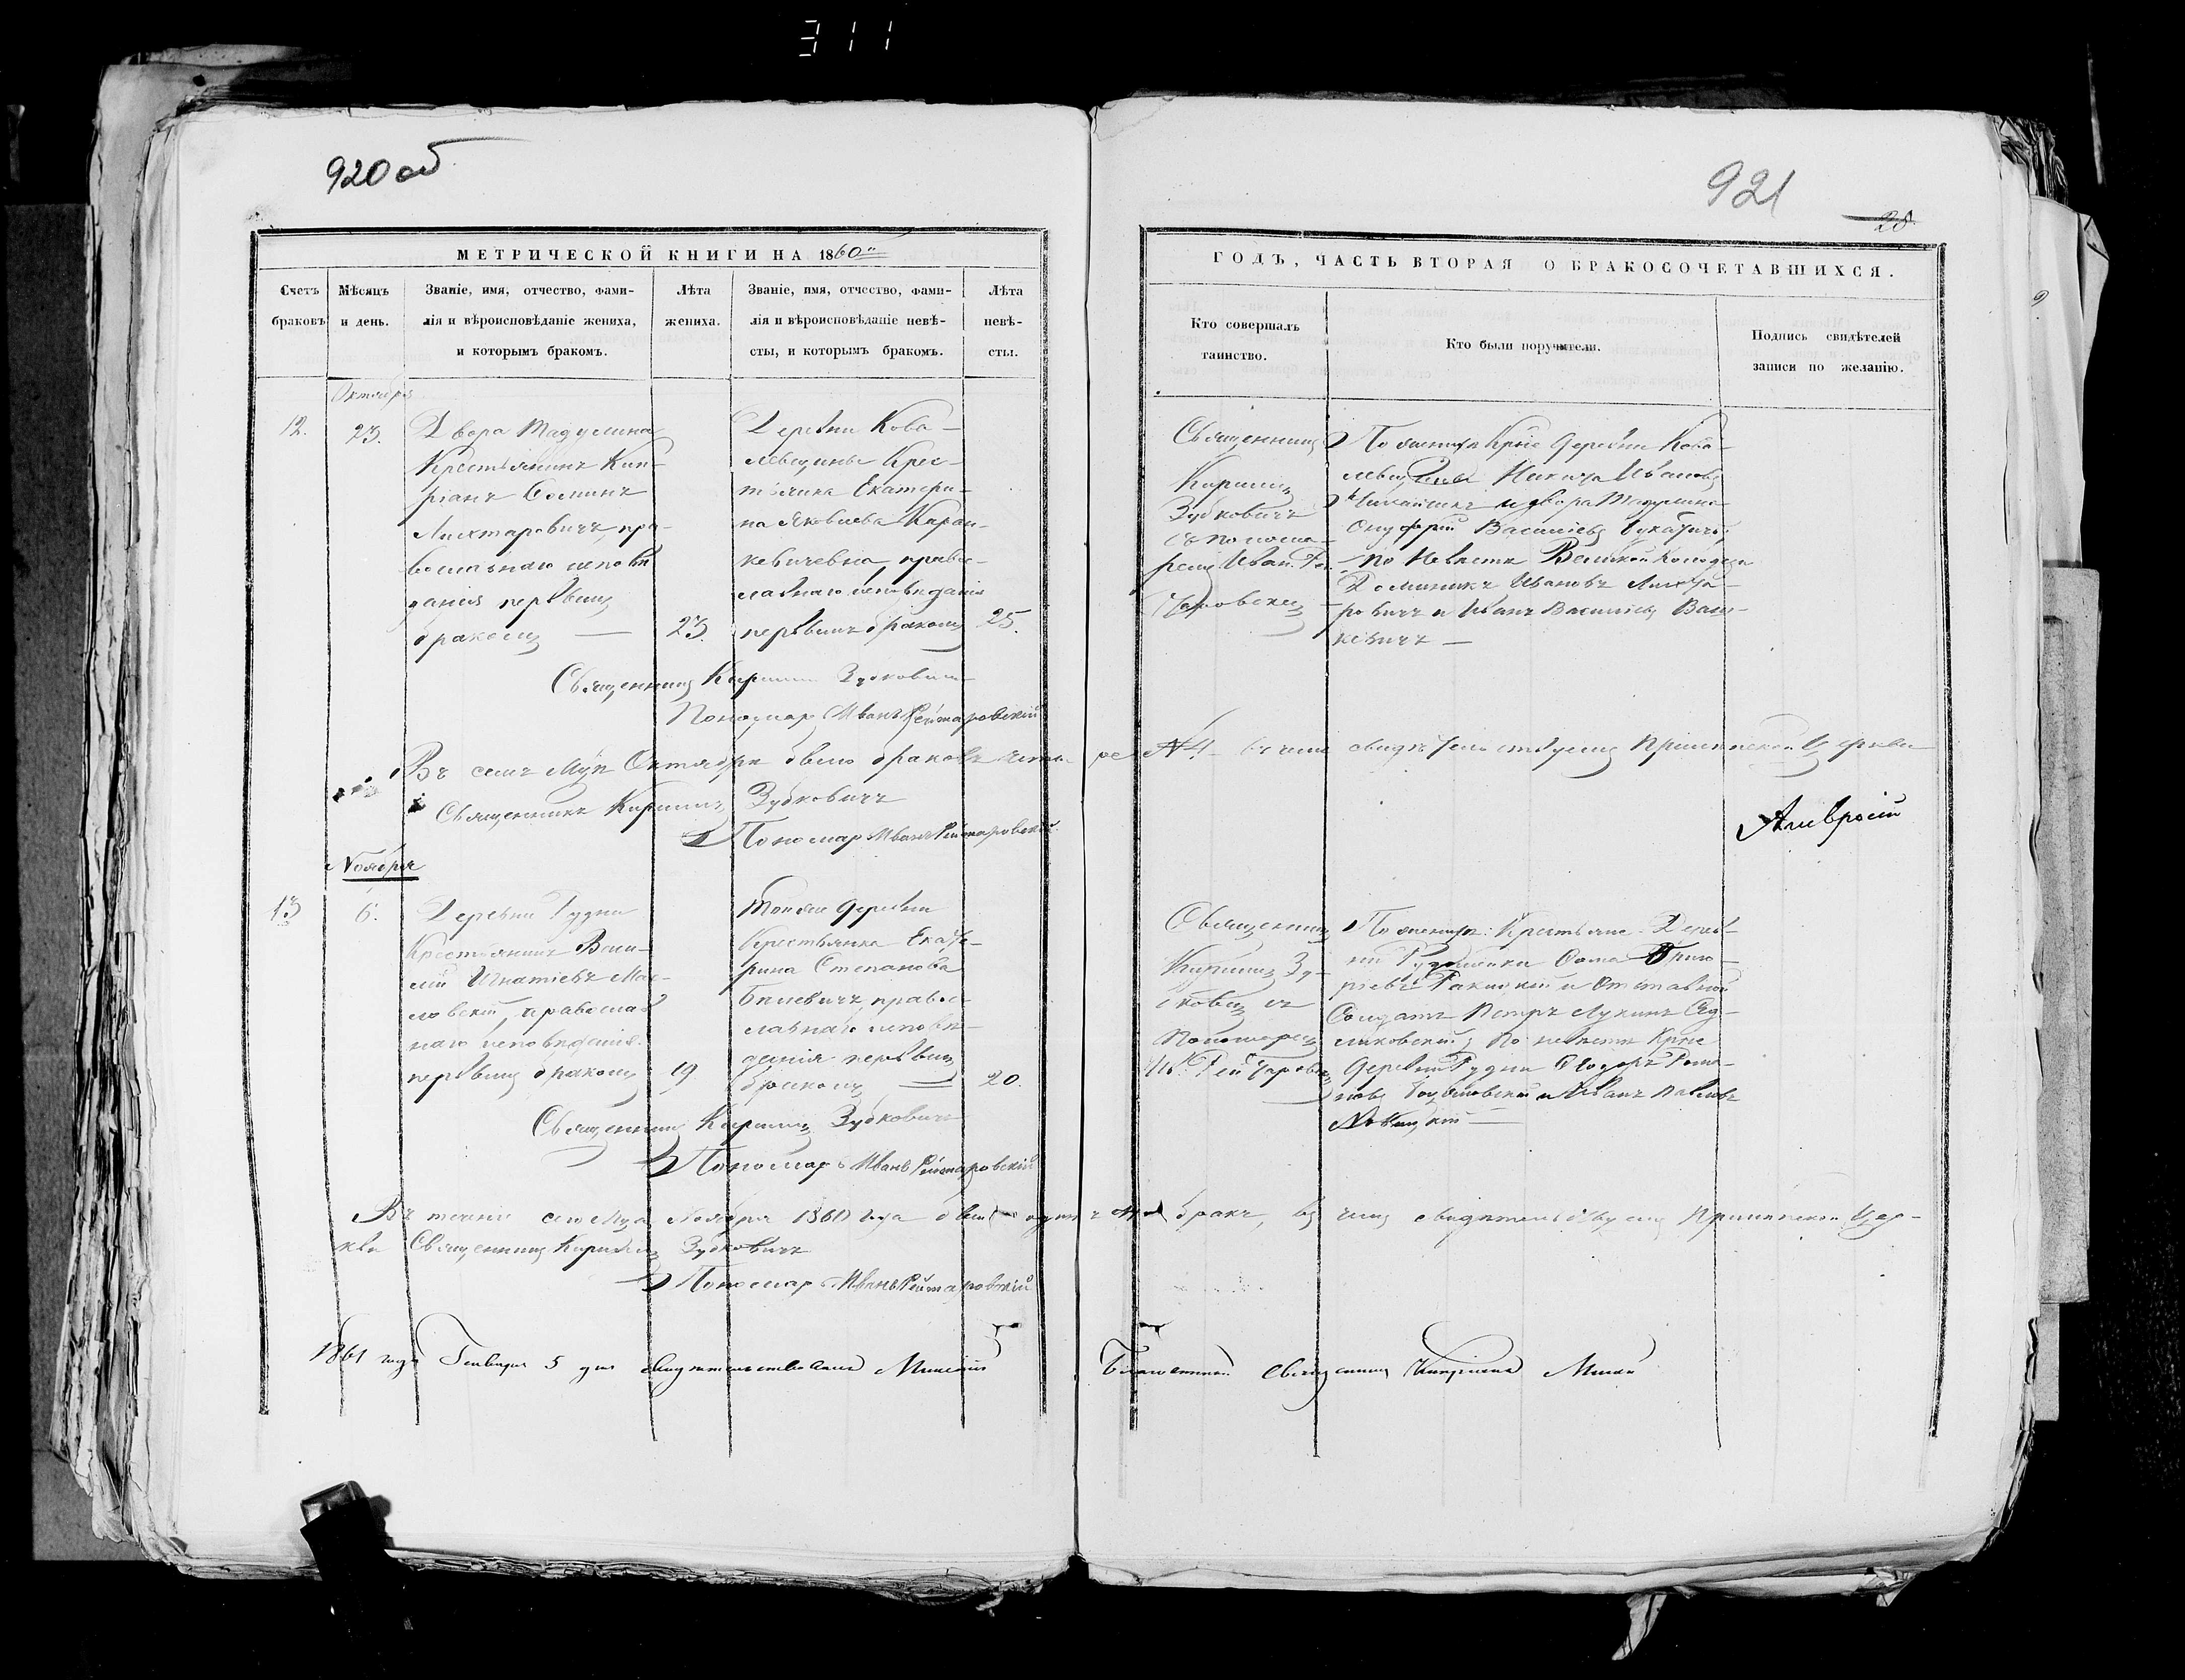 311
920 об
921
28
МЕТРИЧЕСКОЙ КНИГИ НА 1860й
ГОДЪ, ЧАСТЬ ВТОРАЯ О БРАКОСОЧЕТАВШИХСЯ.
Счетъ браковъ
Мѣсяцъ и день.
Званіе, имя, отчество, фами-
лія и вѣроисповѣданіе жениха,
и которымъ бракомъ.
Лѣта жениха.
Званіе, имя, отчество, фами-
лія и вѣроисповѣданіе невѣ-
сты, и которымъ бракомъ.
Лѣта невѣ-
сты.
Кто совершалъ
таинство.
Кто были поручители.
Подпись свидѣтелей
записи по желанію.
Октября
12.
23.
Двора Мадулина
Крестьянинъ Кип-
ріанъ Ѳоминъ
Лихтаровичъ, пра-
вославнаго исповѣ
данія первымъ
бракомъ —
23.
Деревни Кова-
левщины Крес-
тьянка Екатери-
на Яковлева Каран-
кевичевна, право-
славнаго исповѣданія
первымъ бракомъ
25.
Священникъ
Кириллъ
Зубковичъ
съ понома-
ремъ Иван. Рей-
таровскимъ
По женихѣ Крѣс деревни Кова-
левщины Никита Ивановъ
и двора Мадулина
Онуфрій Васильевъ
по Невѣстѣ Великой Колодези
Доминикъ Ивановъ Лихта-
ровичъ и Иванъ Васильевъ Вась-
кевичъ —
Священникъ Кириллъ Зубковичъ
Пономарь Иванъ Рейтаровскій
Въ семъ Мцѣ Октябрѣ было браковъ четы- ре №4 въ чемъ свидѣтельствуемъ Церкви
Священникъ Кириллъ Зубковичъ
Пономарь Иванъ Рейтаровскій
Амвросій
Ноября
13
6.
Деревни Рудни
Крестьянинъ Васи-
лій Игнатіевъ Мас-
ловскій, православ
наго исповѣданія
первымъ бракомъ
19
Тойже деревни
Крестьянка Екате-
рина Степанова
право-
славнаго исповѣ-
данія первымъ
бракомъ —
20.
Священникъ
Кириллъ Зу-
бковичъ съ
Пономаремъ
Ив. Рейтаровскимъ
По женихѣ: Крестьяне Дерев-
ни Ѳома Григо-
ріевъ и Отставной
Солдатъ Петръ Лукинъ Сад-
ликовскій, по невѣстѣ Крѣс
деревни Рудни Ѳеодоръ Рома-
новъ и Иванъ Павловъ
Священникъ Кириллъ Зубковичъ
Пономарь Иванъ Рейтаровскій
Въ теченіе сего Мца Ноября 1860 года былъ одинъ №1 бракъ, въ чемъ свидѣтельствуемъ Цер-
кви Священникъ Кириллъ Зубковичъ
Пономарь Иванъ Рейтаровскій
1861 года Генваря 5 дня свидѣтельствовалъ Благочинный Священникъ